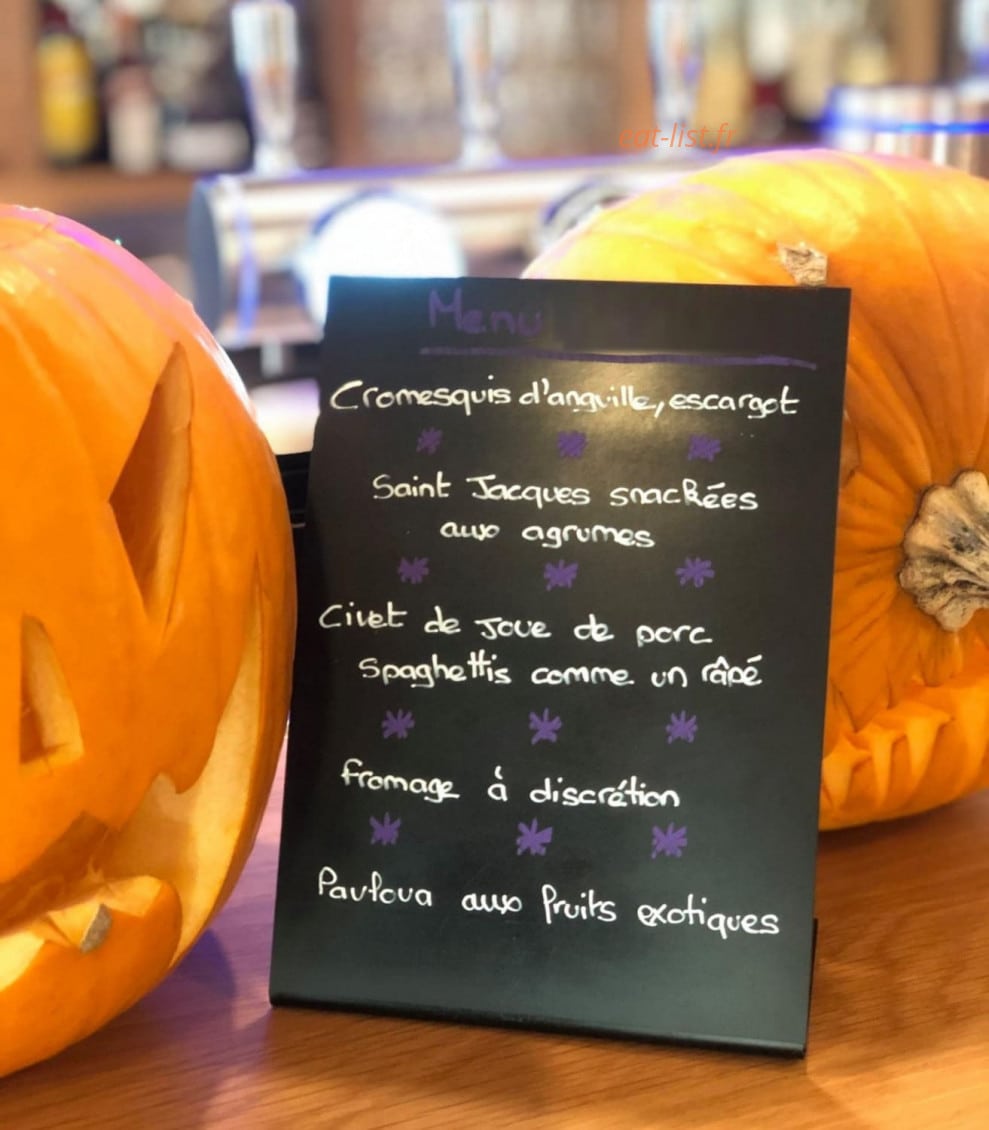 eat-list.fr
Menu
Cromesquis d'anguille, escargot
Saint Jacques snackées
aux agrumes
Civet de Joue de porc
Spaghettis comme un râpé
fromage à discrétion
Pavlova aux fruits exotiques